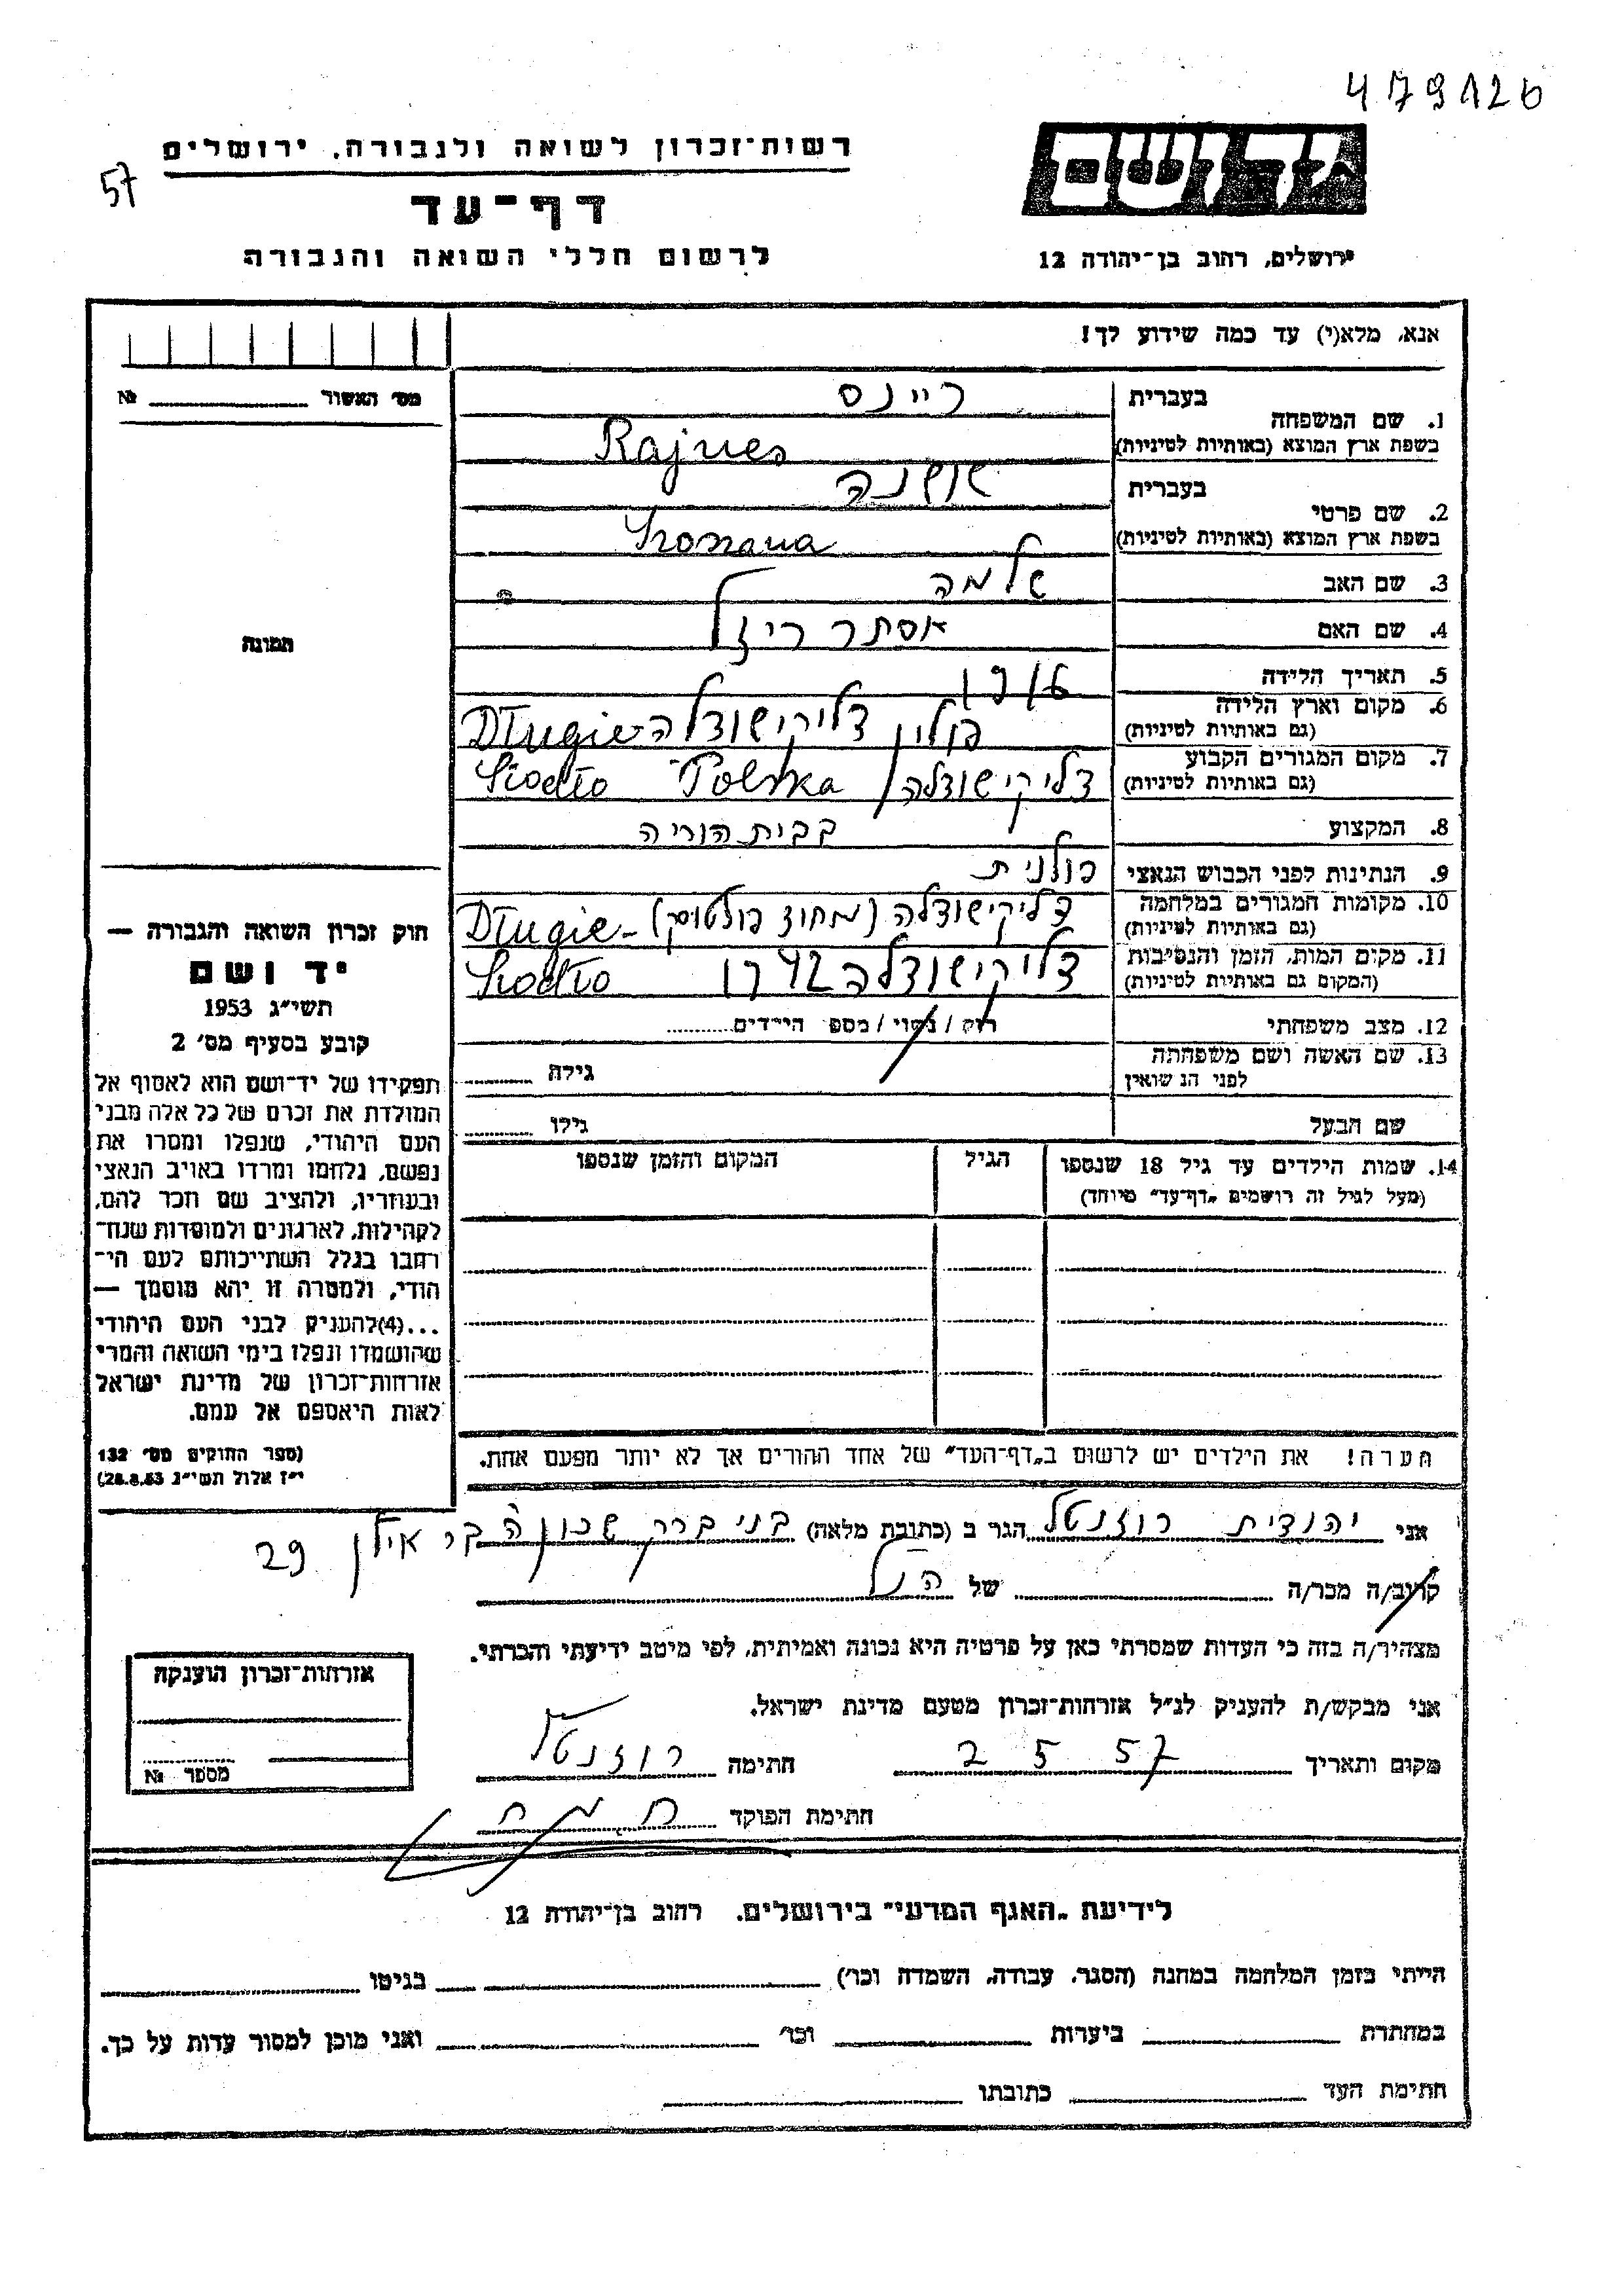 479126
רשות־זכרון לשואה ולגבורה, ירושלים
57
דף־עד
לרשום חללי השואה והגבורה
יד ושם
ירושלים, רחוב בן־יהודה 12
אנא, מלא(י) עד כמה שידוע לך!
מס' האשור № 
בעברית ריינס
1. שם המשפחה
בשפת ארץ המוצא (באותיות לטיניות) Rajnes
בעברית שושנה
2. שם פרטי
בשפת ארץ המוצא (באותיות לטיניות) Szoszana
3. שם האב שלמה
4. שם האם אסתר ריזל
תמונה
5. תאריך הלידה
6. מקום וארץ הלידה פולין דלוגי שודלה Długie
(גם באותיות לטיניות)
7. מקום המגורים הקבוע Polska Siodło
(גם באותיות לטיניות)
8. המקצוע בבית הוריה
9. הנתינות לפני הכבוש הנאצי פולנית
10. מקומות המגורים במלחמה (מחוז פולטוסק) Długie-
(גם באותיות לטיניות)
11. מקום המות, הזמן והנסיבות 1942 Siodło
(המקום גם באותיות לטיניות)
12. מצב משפחתי רוק / נשוי / מספ' הילדים
13. שם האשה ושם משפחתה
לפני הנשואין גילה
שם הבעל גילו
14. שמות הילדים עד גיל 18 שנספו הגיל המקום והזמן שנספו
(מעל לגיל זה רושמים „דף־עד" מיוחד)
הערה! את הילדים יש לרשום ב„דף־העד" של אחד ההורים אך לא יותר מפעם אחת.
חוק זכרון השואה והגבורה —
יד ושם
תשי"ג 1953
קובע בסעיף מס' 2
תפקידו של יד־ושם הוא לאסוף אל
המולדת את זכרם של כל אלה מבני
העם היהודי, שנפלו ומסרו את
נפשם, נלחמו ומרדו באויב הנאצי
ובעוזריו, ולהציב שם וזכר להם,
לקהילות, לארגונים ולמוסדות שנח־
רחבו בגלל השתייכותם לעם הי־
הודי, ולמטרה זו יהא מוסמך —
...(4)להעניק לבני העם היהודי
שהושמדו ונפלו בימי השואה והמרי
אזרחות־זכרון של מדינת ישראל
לאות היאספם אל עמם.
(ספר החוקים מס' 132
י"ז אלול תשי"ג 28.8.53)
אני יהודית רוזנטל הגר ב (כתובת מלאה) בני ברק שכונה בר אילן 29
קרוב/ה מכר/ה של הנ"ל
מצהיר/ה בזה כי העדות שמסרתי כאן על פרטיה היא נכונה ואמיתית, לפי מיטב ידיעתי והכרתי.
אני מבקש/ת להעניק לנ"ל אזרחות־זכרון מטעם מדינת ישראל.
מקום ותאריך 2 5 57 חתימה רוזנטל
חתימת הפוקד
אזרחות־זכרון הוענקה
מספר №
לידיעת „האגף המדעי" בירושלים, רחוב בן־יהודה 12
הייתי בזמן המלחמה במחנה (הסגר, עבודה, השמדה וכו') בגיטו
במחתרת ביערות וכו' ואני מוכן למסור עדות על כך.
חתימת העד כתובתו